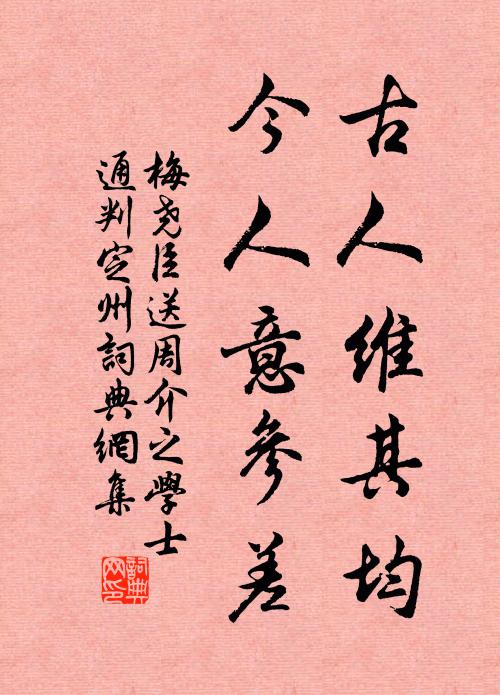 古人維其均
今人意參差
梅堯臣送周介之學士
通判定州詞典網集
詞典
网印